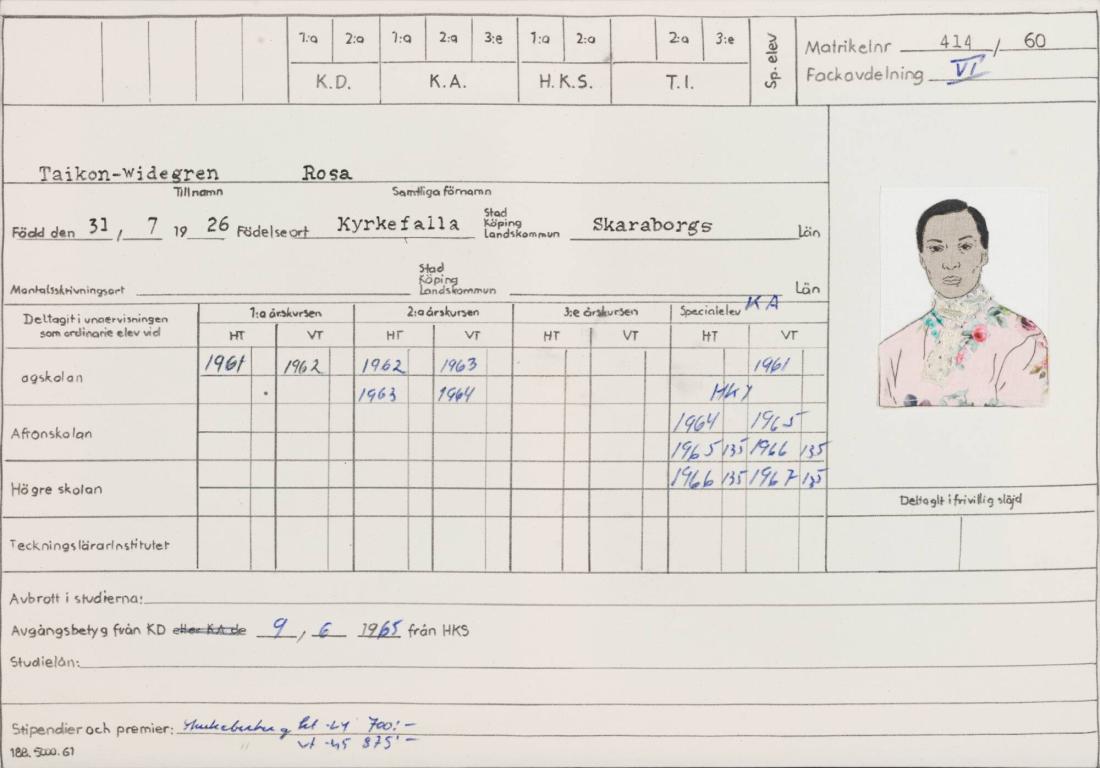 1:a 2:a 1:a 2:a 3:e 1:a 2:a 2:a 3:e
K.D. K.A. H.K.S. T.I. Sp. elev
Matrikelnr 414 / 60
Fackavdelning VI
Taikon-Widegren Rosa
Tillnamn Samtliga förnamn
Född den 31 / 7 19 26 Födelseort Kyrkefalla Stad Köping Landskommun Skaraborgs Län
Mantalsskrivningsort Stad Köping Landskommun Län
Deltagit i undervisningen
som ordinarie elev vid
1:a årskursen 2:a årskursen 3:e årskursen Specialelev KA
HT VT HT VT HT VT HT VT
agskolan 1961 1962 1962 1963 1961
1963 1964 HKS
Aftonskolan 1964 1965
1965 135 1966 135
Högre skolan 1966 135 1967 135
Deltagit i frivillig slöjd
Teckningslärarinstitutet
Avbrott i studierna:
Avgångsbetyg från KD eller KA de 9 , 6 1965 från HKS
Studielån:
Stipendier och premier: ht -64 700:-
vt -65 875:-
188. 5000. 61